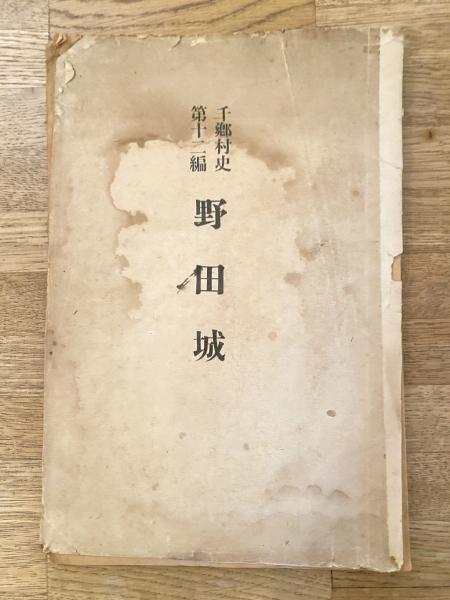 千郷村史
第十二編
野田城